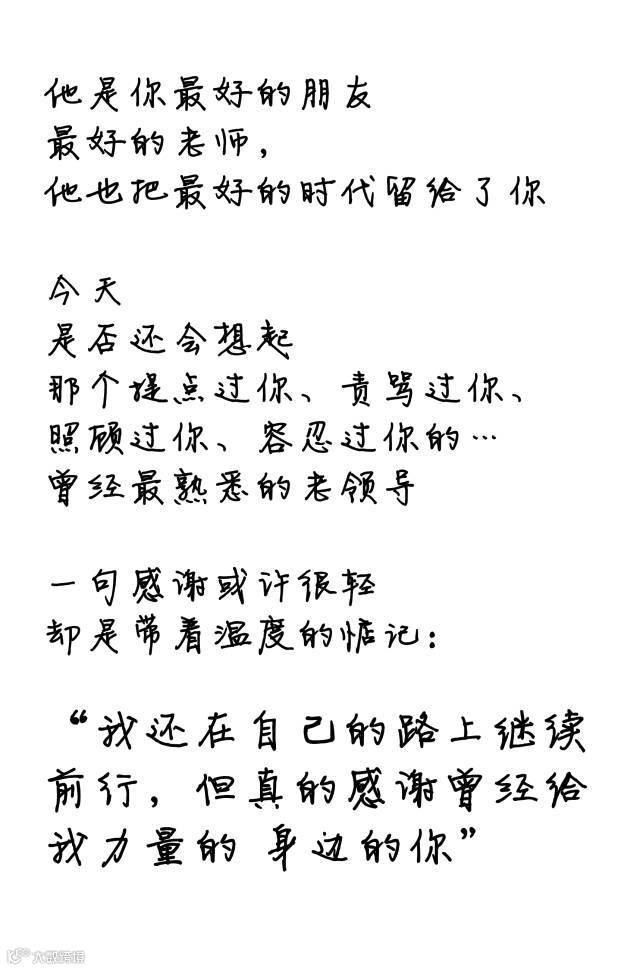 他是你最好的朋友
最好的老师，
他也把最好的时代留给了你
今天
是否还会想起
那个提点过你、责骂过你、
照顾过你、容忍过你的…
曾经最熟悉的老领导
一句感谢或许很轻
却是带着温度的惦记：
“我还在自己的路上继续
前行，但真的感谢曾经给
我力量的 身边的你”
大数跨境